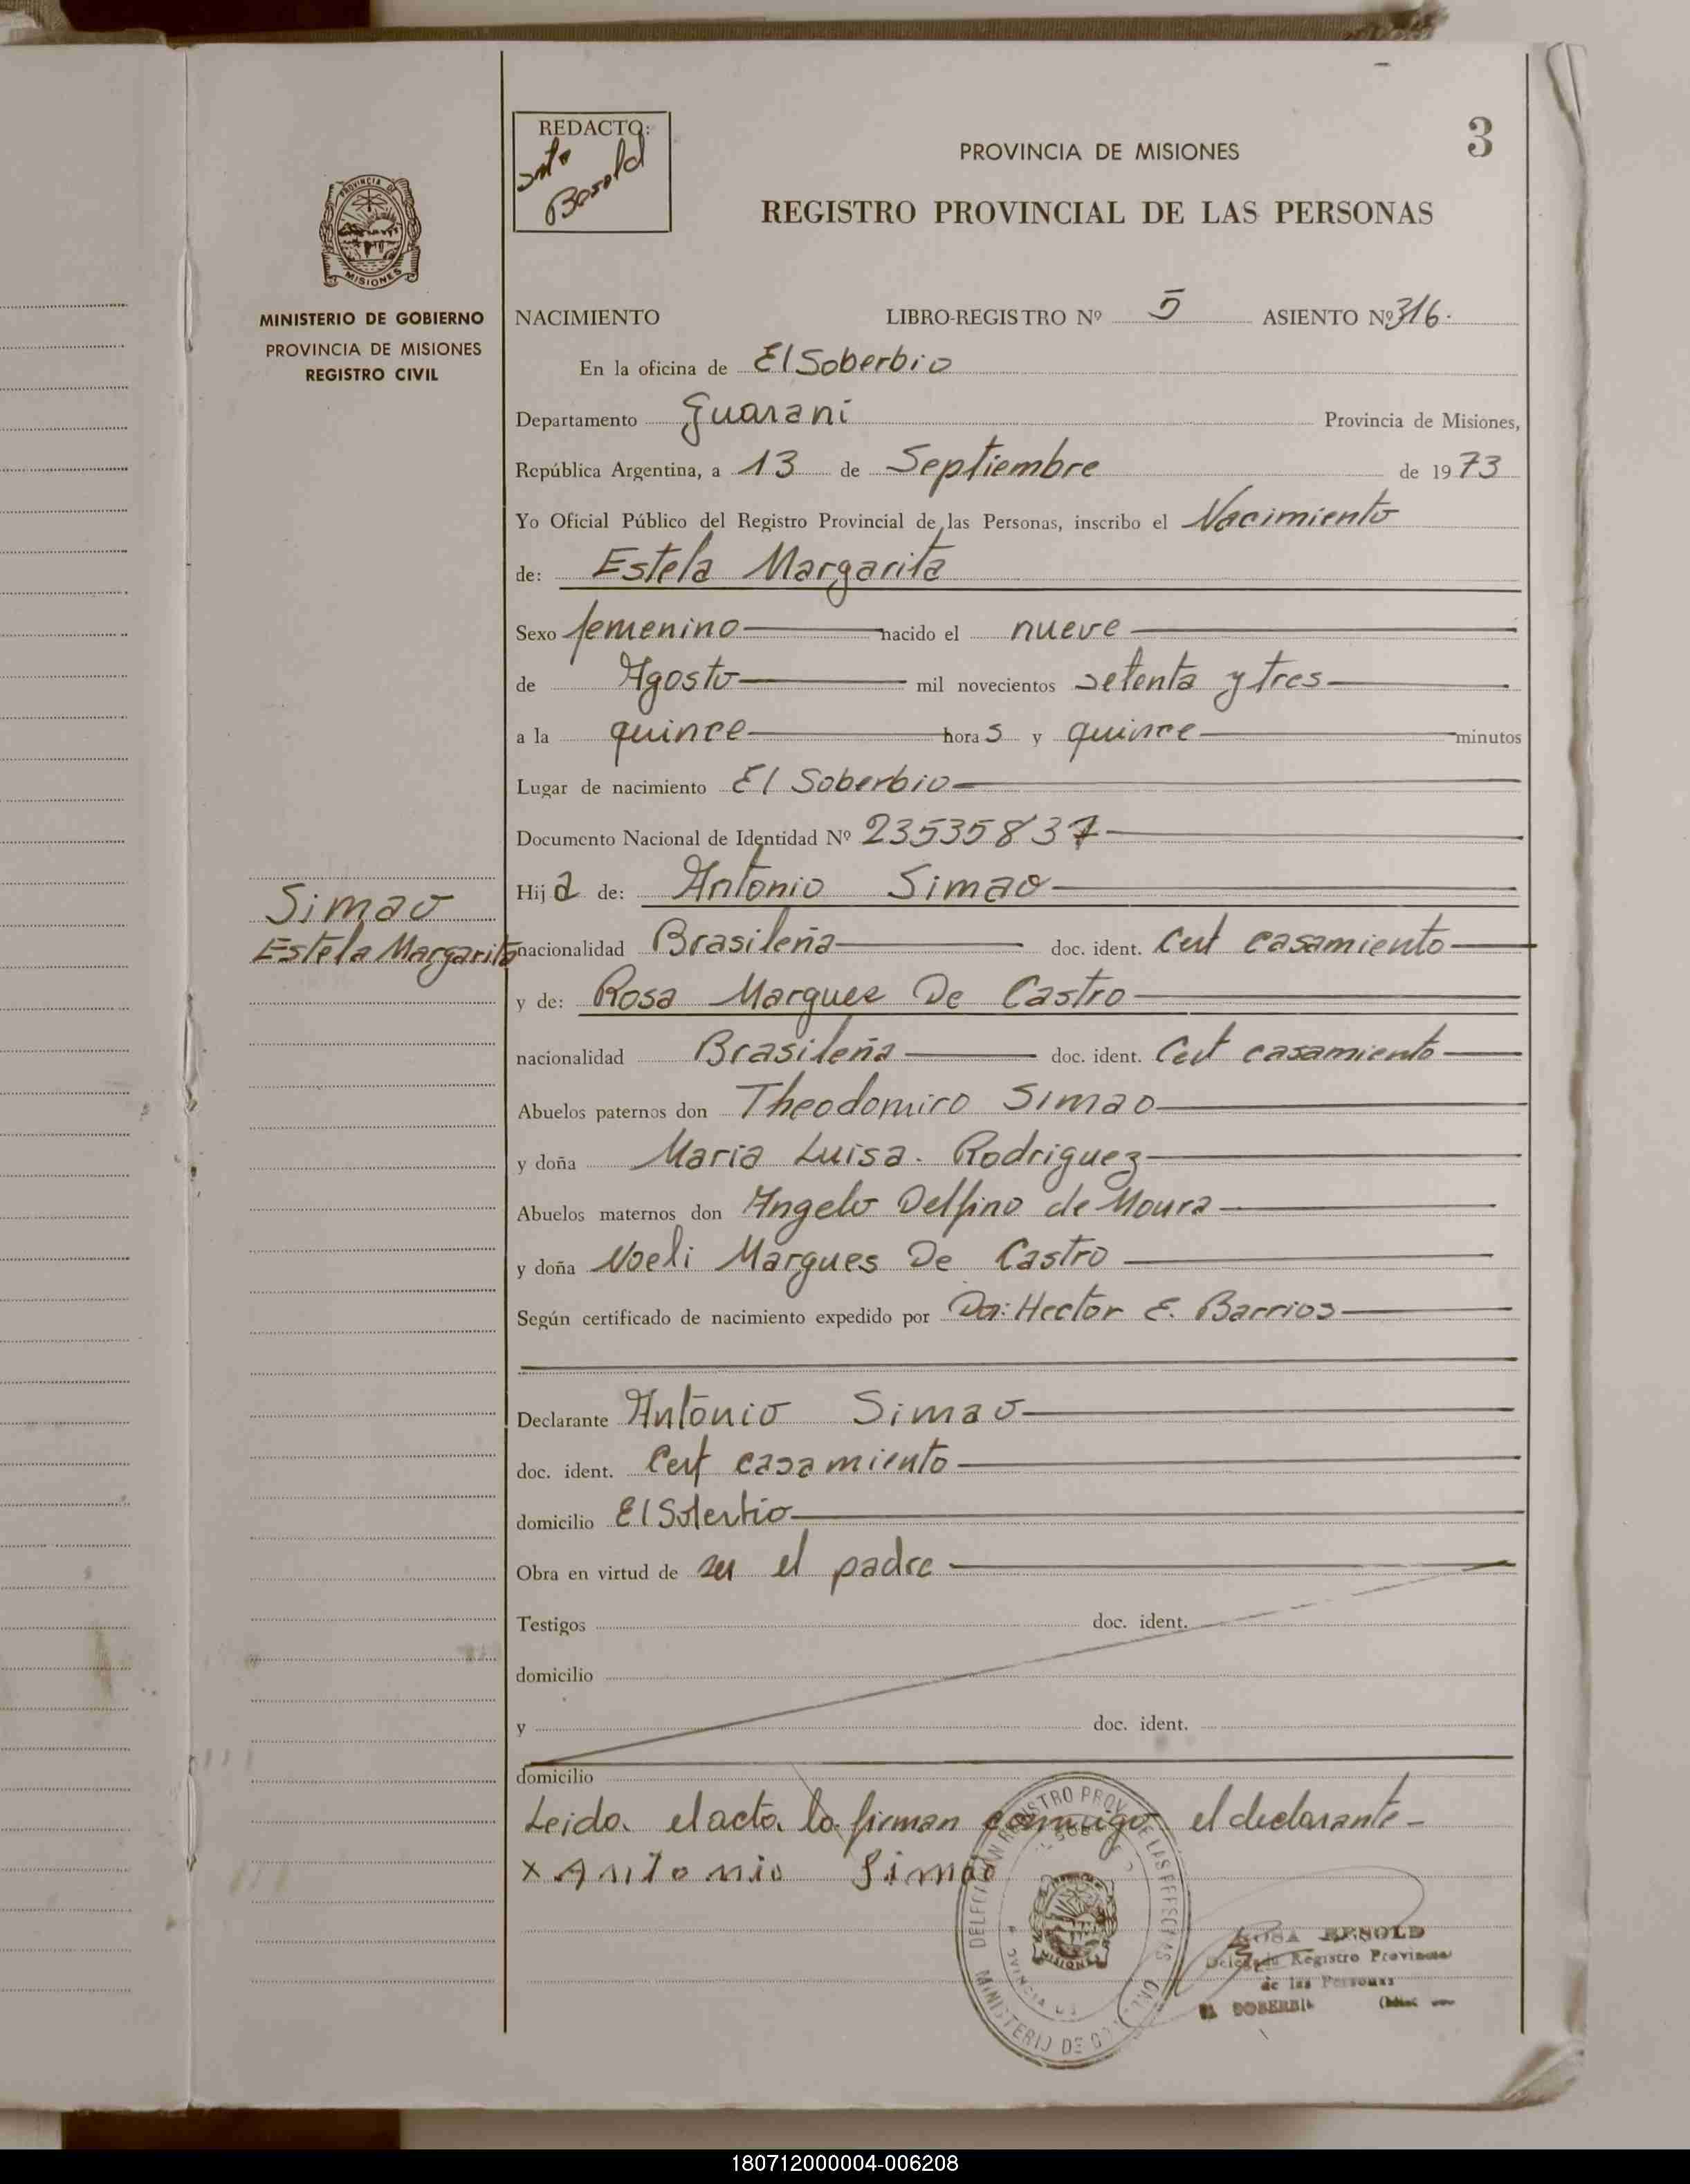 REDACTO:
Besold
PROVINCIA DE MISIONES
3
REGISTRO PROVINCIAL DE LAS PERSONAS
PROVINCIA DE
MISIONES
MINISTERIO DE GOBIERNO
PROVINCIA DE MISIONES
REGISTRO CIVIL
NACIMIENTO LIBRO-REGISTRO Nº 5 ASIENTO Nº 316.
En la oficina de El Soberbio
Departamento Guarani Provincia de Misiones,
República Argentina, a 13 de Septiembre de 1973
Yo Oficial Público del Registro Provincial de las Personas, inscribo el Nacimiento
de: Estela Margarita
Sexo femenino nacido el nueve
de Agosto mil novecientos setenta y tres
a la quince horas y quince minutos
Lugar de nacimiento El Soberbio
Documento Nacional de Identidad Nº 23535837
Hija de: Antonio Simao
Simao
Estela Margarita
nacionalidad Brasileña doc. ident. Cert casamiento
y de: Rosa Marques De Castro
nacionalidad Brasileña doc. ident. Cert casamiento
Abuelos paternos don Theodomiro Simao
y doña Maria Luisa. Rodriguez
Abuelos maternos don Angelo Delfino de Moura
y doña Noeli Margues De Castro
Según certificado de nacimiento expedido por Hector E. Barrios
Declarante Antonio Simao
doc. ident. Cert casamiento
domicilio El Soberbio
Obra en virtud de ser el padre
Testigos doc. ident.
domicilio
y doc. ident.
domicilio
Leida el acta la firman conmigo el declarante -
x Antonio Simao
MISIONES
MINISTERIO DE
ROSA BESOLD
Delegada Registro Provincial
de las Personas
EL SOBERBIO
180712000004-006208